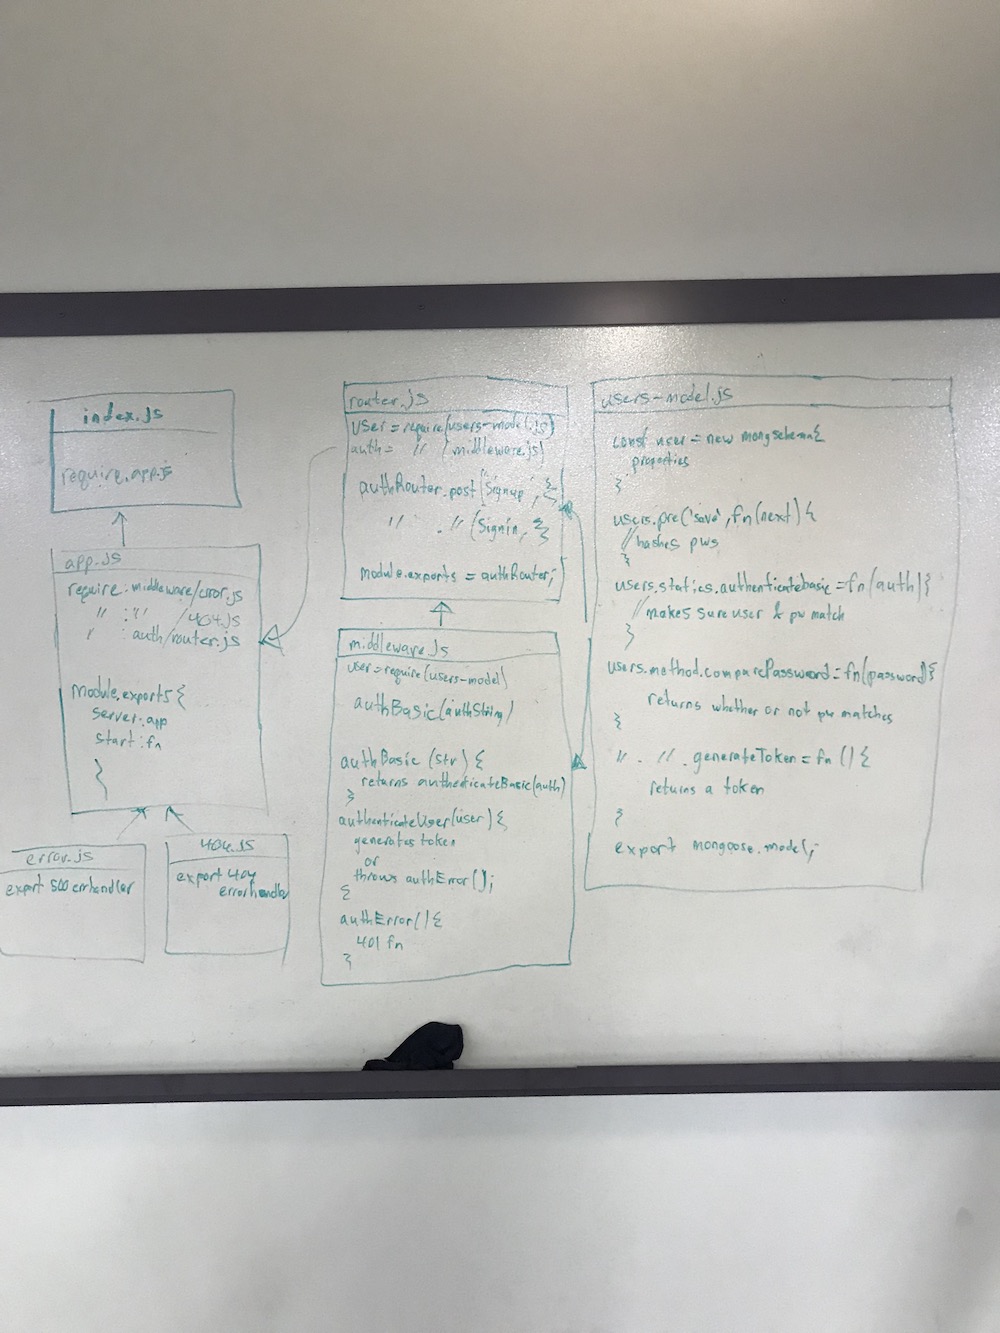 index.js
require.app.js
app.js
require: middleware/error.js
" : "/ /404.js
" : auth/router.js
module.exports {
server: app
start: fn
}
error.js
export 500 errhandler
404.js
export 404
errorhandler
router.js
User = require/users-model.js)
auth = " (middleware.js)
authRouter.post(Signup, {}
" . " (Signin, {}
module.exports = authRouter;
middleware.js
user = require(users-model)
authBasic(authString)
authBasic (str) {
returns authenticateBasic(auth)
}
authenticateUser(user) {
generates token
or
throws authError();
{
authError() {
401 fn
}
users-model.js
const user = new mongschema{
properties
}
users.pre('save', fn(next) {
//hashes pws
}
users.statics.authenticatebasic = fn(auth) {
//makes sure user & pw match
}
users.method.comparePassword = fn(password) {
returns whether or not pw matches
}
" . " .generateToken = fn () {
returns a token
}
export mongoose.model;